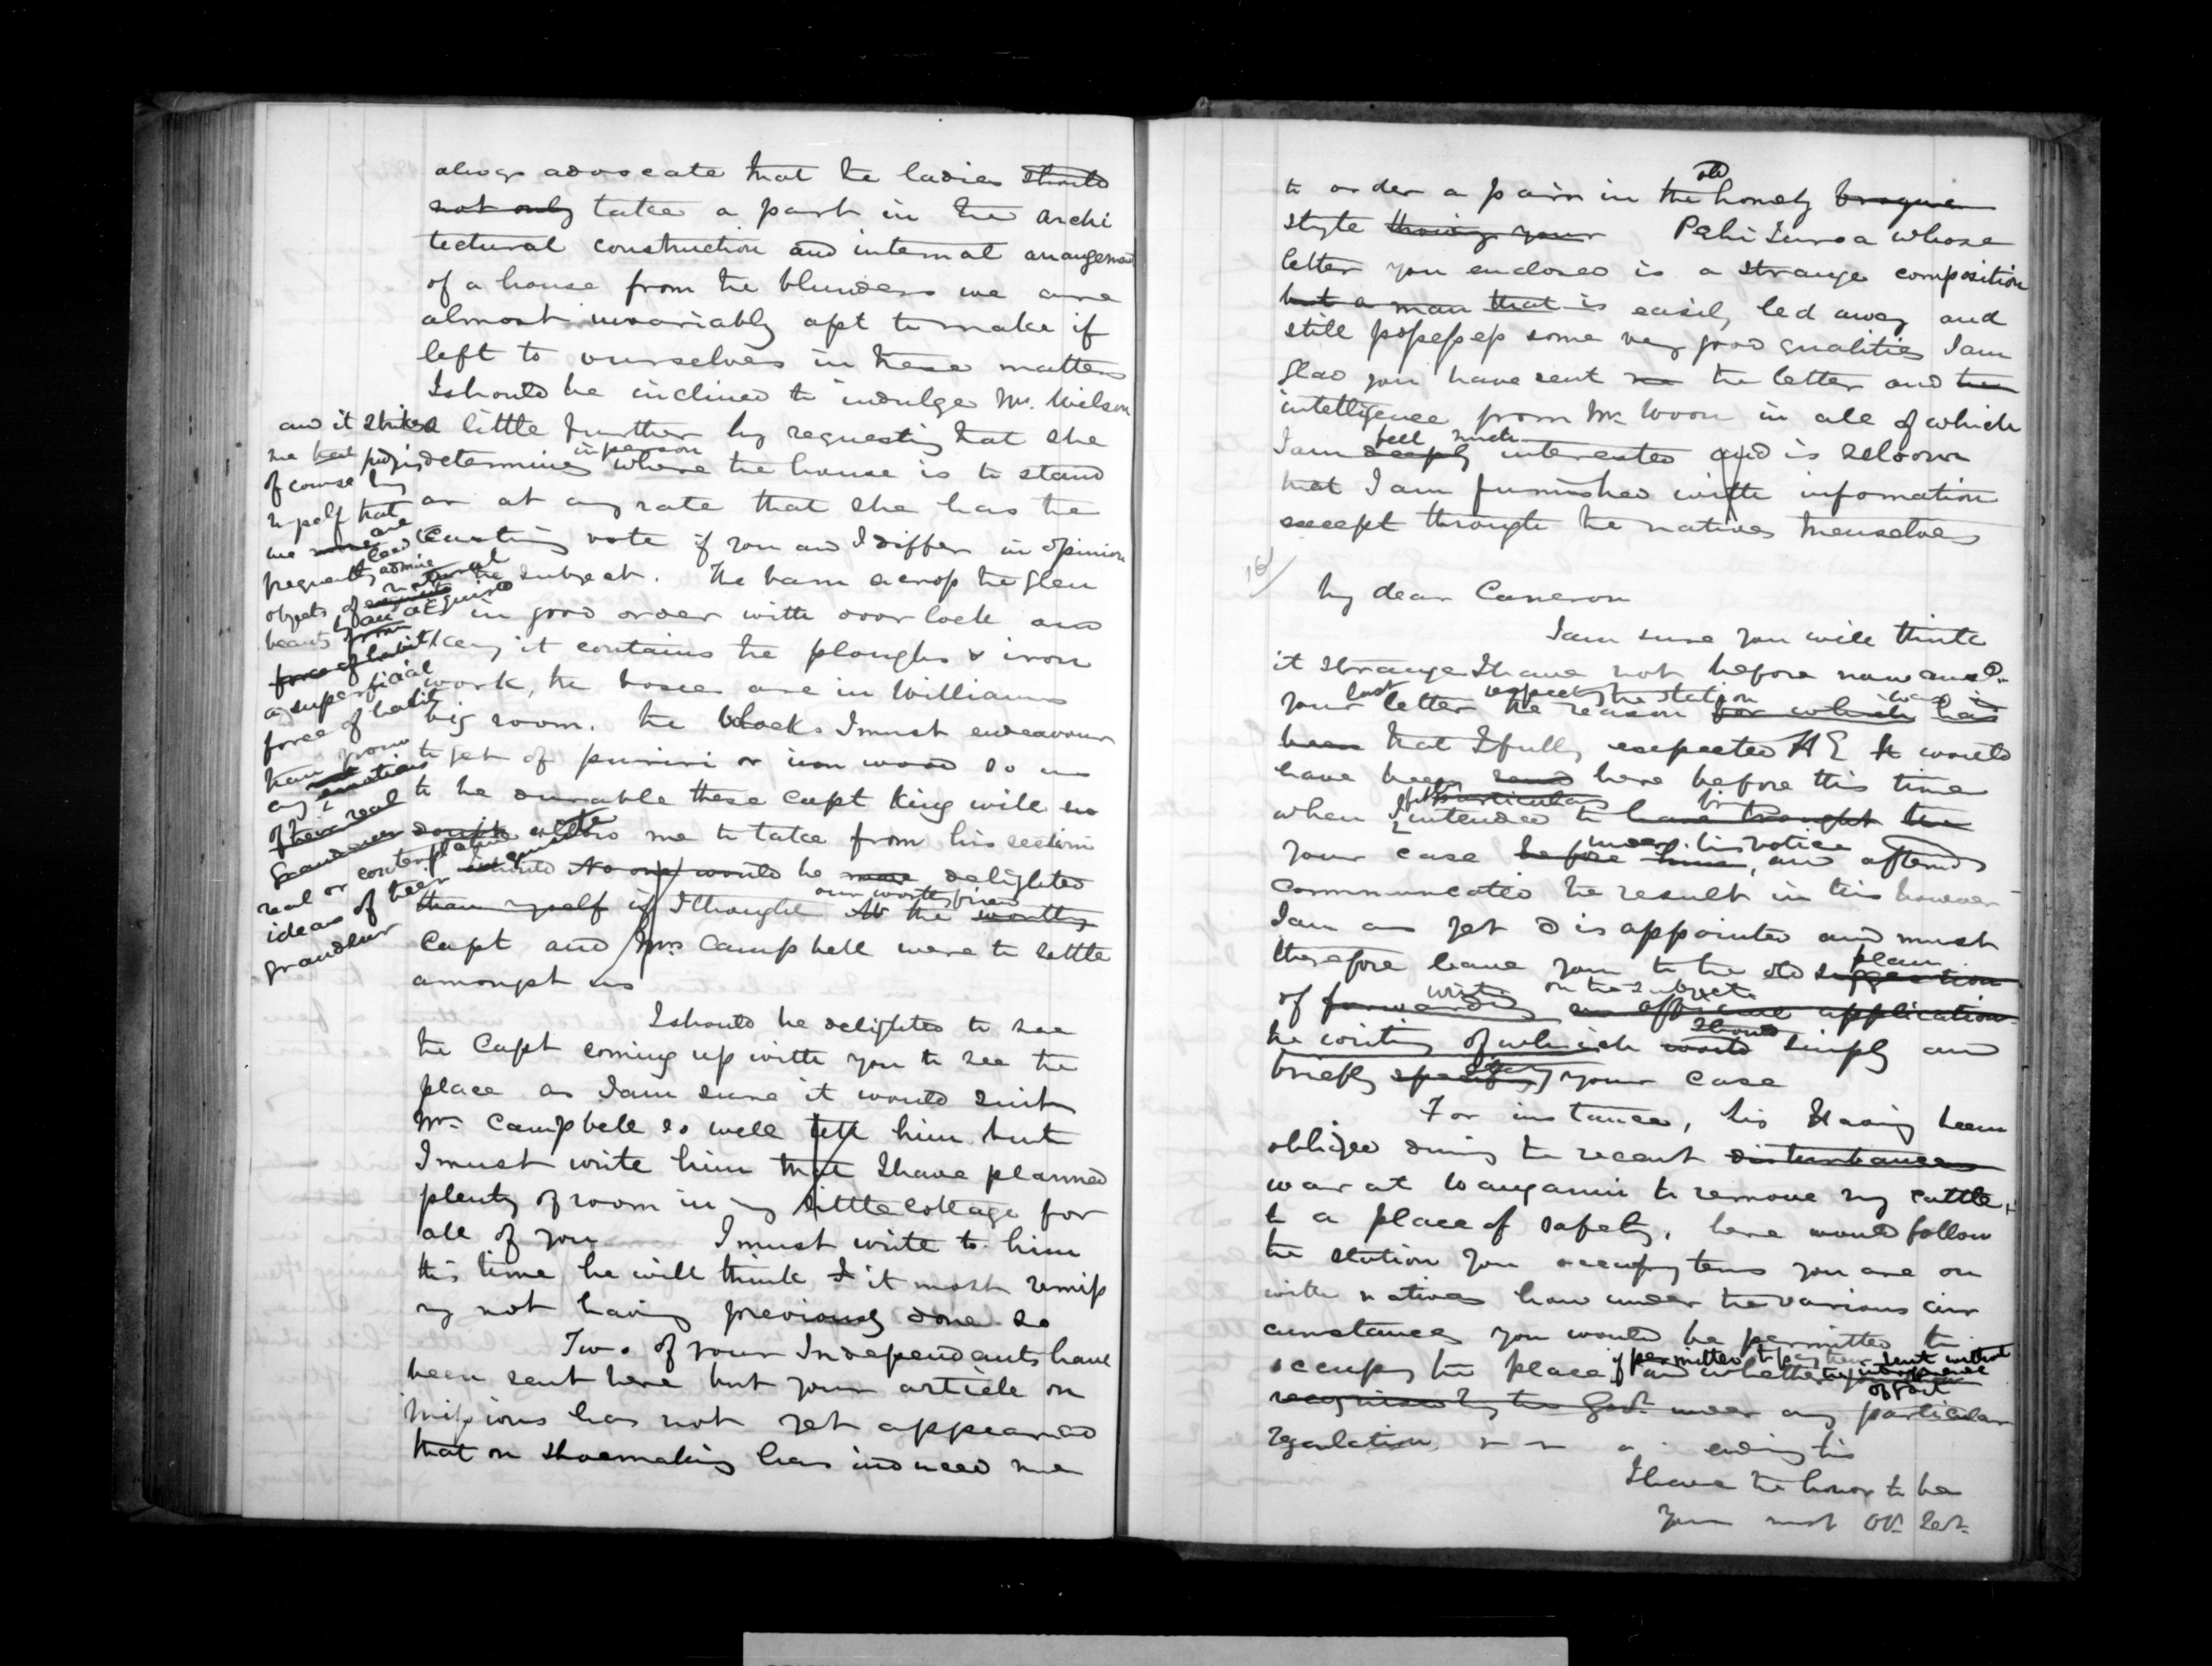 always advocate that the ladies should
not only take a part in the archi
tectural construction and internal arrangement
of a house from the blunders we are
almost invariably apt to make if
left to ourselves in these matters
I should be inclined to indulge Mrs. Wilson
a little further by requesting that she
determines in person where the house is to stand
or at any rate that she has the
casting vote if you and I differ in opinion
the subject. The barn across the glen
in good order with door lock and
key it contains the ploughs & iron
work, the boxes are in Williams
big room. The blocks I must endeavour
to get of puriri or iron wood so as
to be durable these Capt King will no
doubt allow me to take from his section
I should No one would be more delighted
than myself if I thought the our worthy friend worthy
Capt and Mrs Campbell were to settle
amongst us
and it strikes
me that
of course by
myself that
we are
frequently led admire
objects of natural
beauty
force of habit
a superficial
force of habit
than from
any emotions
of their real
Grandeur
real or contemplative
ideas of their
grandeur
I should be delighted to see
the Capt coming up with you to see the
place as I am sure it would suit
Mrs Campbell so well tell him but
I must write him that I have planned
plenty of room in my little cottage for
all of you I must write to him
this time he will think I it most remiss
my not having previously done so
Two of your Independants have
been sent here but your article on
Missions has not yet appeared
that on shoemaking has induced me
to order a pair in the old homely brogue
style Pehi Turoa whose
letter you enclosed is a strange composition
but a man that is easily led away and
still possesses some very good qualities I am
glad you have sent me the letter and the
intelligence from Mr Woon in all of which
I am deeply feel much interested and is seldom
that I am furnished with information
except through the natives themselves
16/
My dear Cameron
I am sure you will think
it strange I have not before now ansd.
your last letter respecting the station the reason for which has was is
been that I fully expected HE It would
have been here before this time
when I intended to have brought the
your case before him under his notice, and aftends
communicated the result in this however
I am as yet disappointed and must
therefore leave you to the old suggestion plan
of forwarding writing on the subject an official application
the writing of which would should simply and
briefly specifying your case
For instance, his Having been
obliged during the recent disturbances
war at Wanganui to remove my cattle
to a place of safety, here would follow
the station you occupy terms you are on
with natives how under the various cir
cumstances you would be permitted to
occupy the place if permitted to pay them rent without
and whether
recognised by the Govt under any particular
regulation ending this
I have the honor to be
Your most Obt Sert